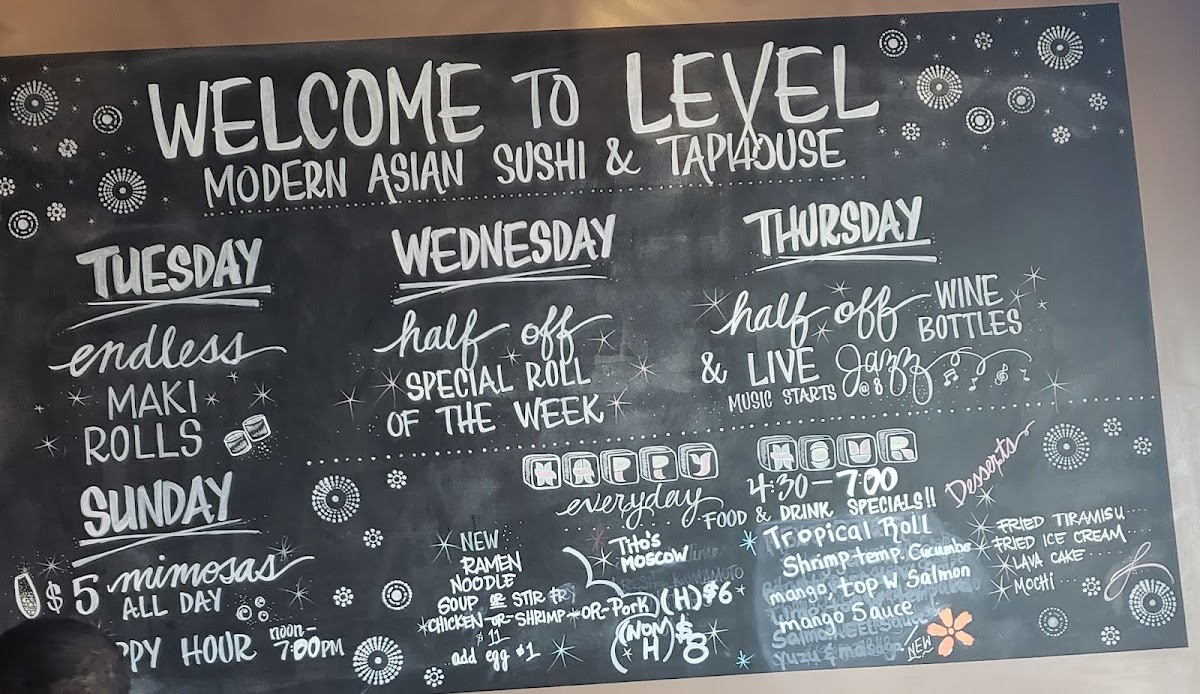 WELCOME TO LEVEL
MODERN ASIAN SUSHI & TAPHOUSE
TUESDAY
endless
MAKI
ROLLS
WEDNESDAY
half off
SPECIAL ROLL
OF THE WEEK
THURSDAY
half off WINE
BOTTLES
& LIVE Jazz
MUSIC STARTS @ 8
SUNDAY
$5 mimosas
ALL DAY
PPY HOUR noon-
7:00PM
HAPPY HOUR
everyday 4:30-7:00
FOOD & DRINK SPECIALS!!
NEW
RAMEN
NOODLE
SOUP OR STIR FR
CHICKEN-OR-SHRIMP-OR-Pork
$11
add egg $1
Tito's
Moscow
(H) $6
(NON H) $8
Tropical Roll
Shrimp temp. Cucumber
mango, top W Salmon
mango Sauce
Salmon eel sauce
yuzu & masago
NEW
Desserts
FRIED TIRAMISU
FRIED ICE CREAM
LAVA CAKE
MOCHI